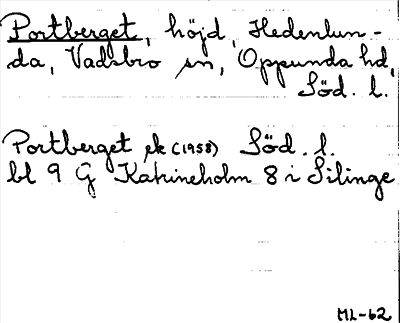 Portberget, höjd, Hedenlun-
da, Vadsbro sn, Oppunda hd,
Söd. l.
Portberget ek (1958) Söd. l.
bl 9 G Katrineholm 8 i Silinge
ML-62